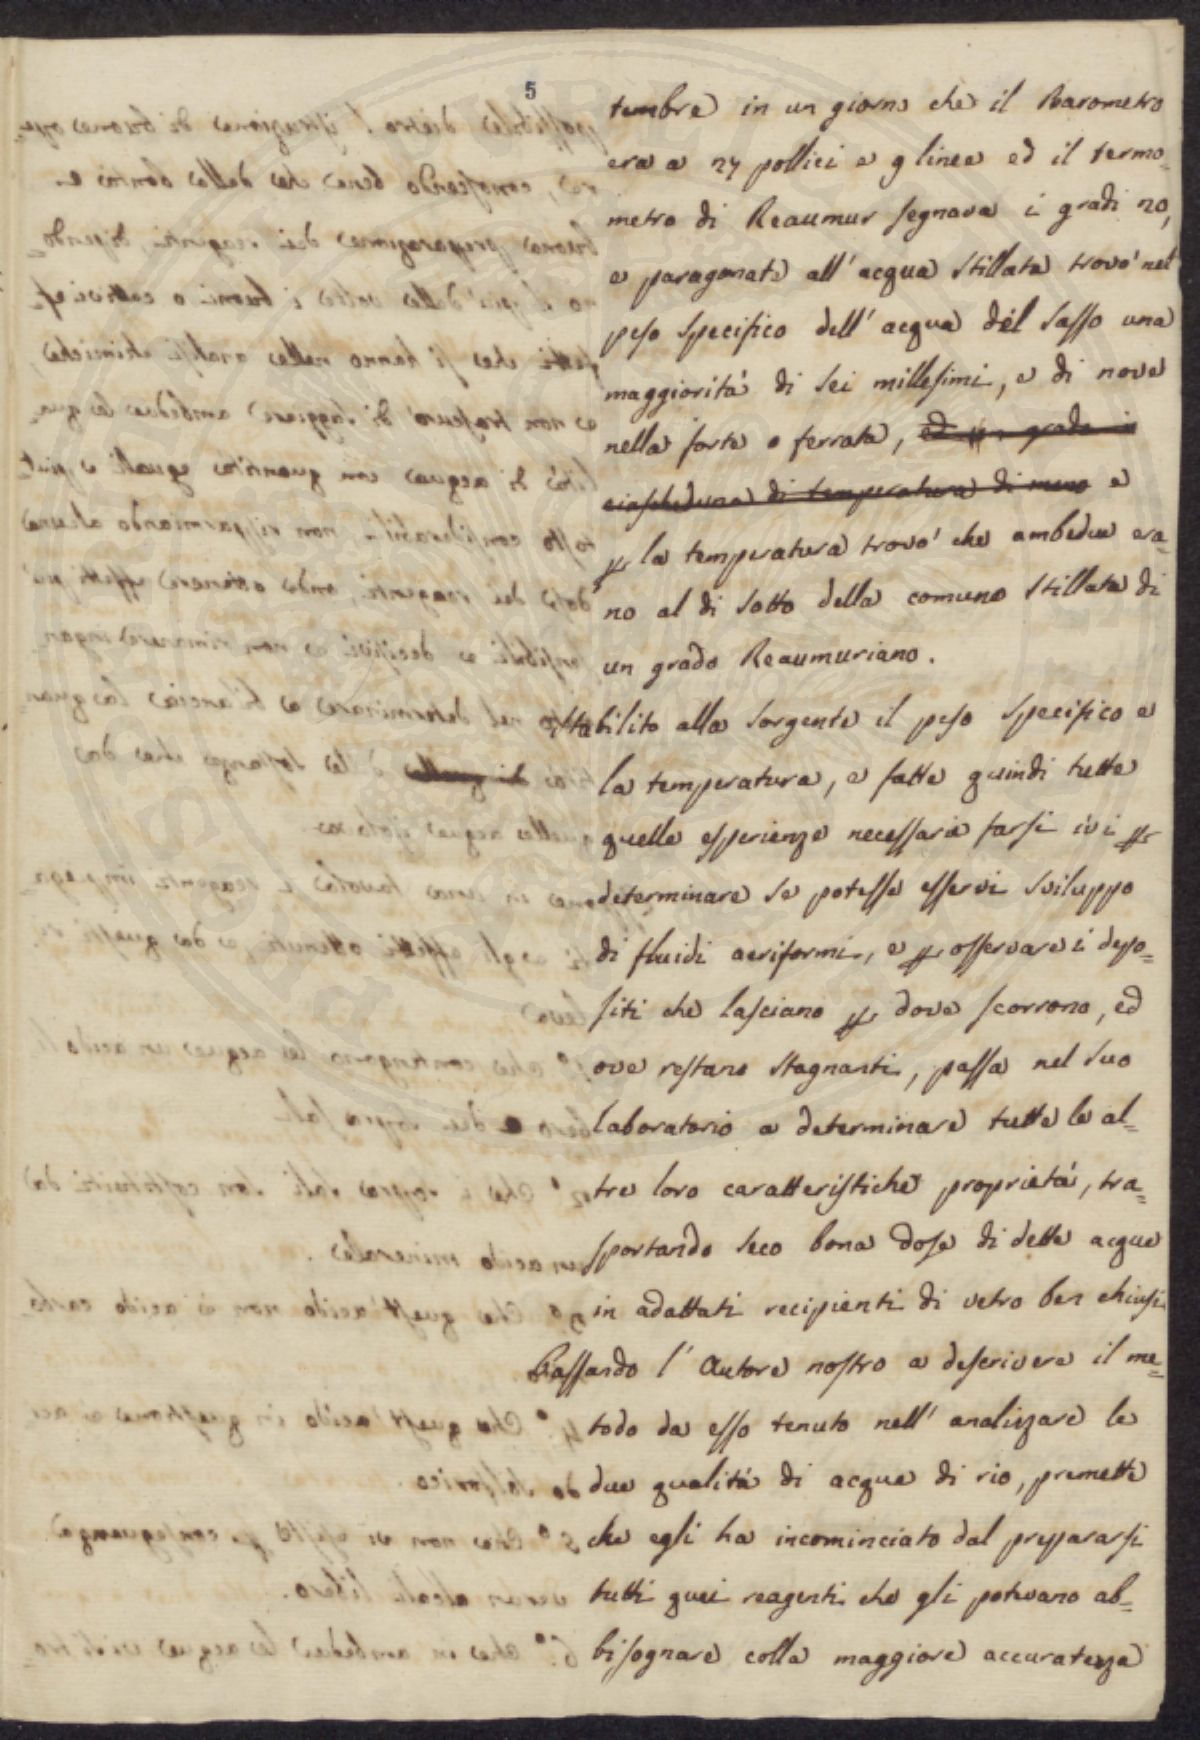 5
tembre in un giorno che il Barometro
era a 27 pollici e 9 linee ed il termo=
metro di Reaumur segnava i gradi 20,
e paragonate all' acqua stillata trovò nel
peso specifico dell' acqua del Sasso una
maggiorità di sei millesimi, e di nove
nella forte o ferrata, ed grado in
ciascheduna di temperatura di meno e
per la temperatura trovò che ambedue era=
no al di sotto della comune stillata di
un grado Reaumuriano.
Stabilito alla sorgente il peso specifico e
la temperatura, e fatte quindi tutte
quelle esperienze necessarie farsi ivi per
determinare se potesse esservi sviluppo
di fluidi aeriformi, e per osservare i depo=
siti che lasciano per dove scorrono, ed
ove restano stagnanti, passa nel suo
laboratorio a determinare tutte le al=
tre loro caratteristiche proprietà, tra=
sportando seco bona dose di dette acque
in adattati recipienti di vetro ben chiusi
Passando l' Autore nostro a descrivere il me=
todo da esso tenuto nell' analizzare le
due qualità di acque di rio, premette
che egli ha incominciato dal prepararsi
tutti quei reagenti che gli potevano ab=
bisognare colla maggiore accuratezza